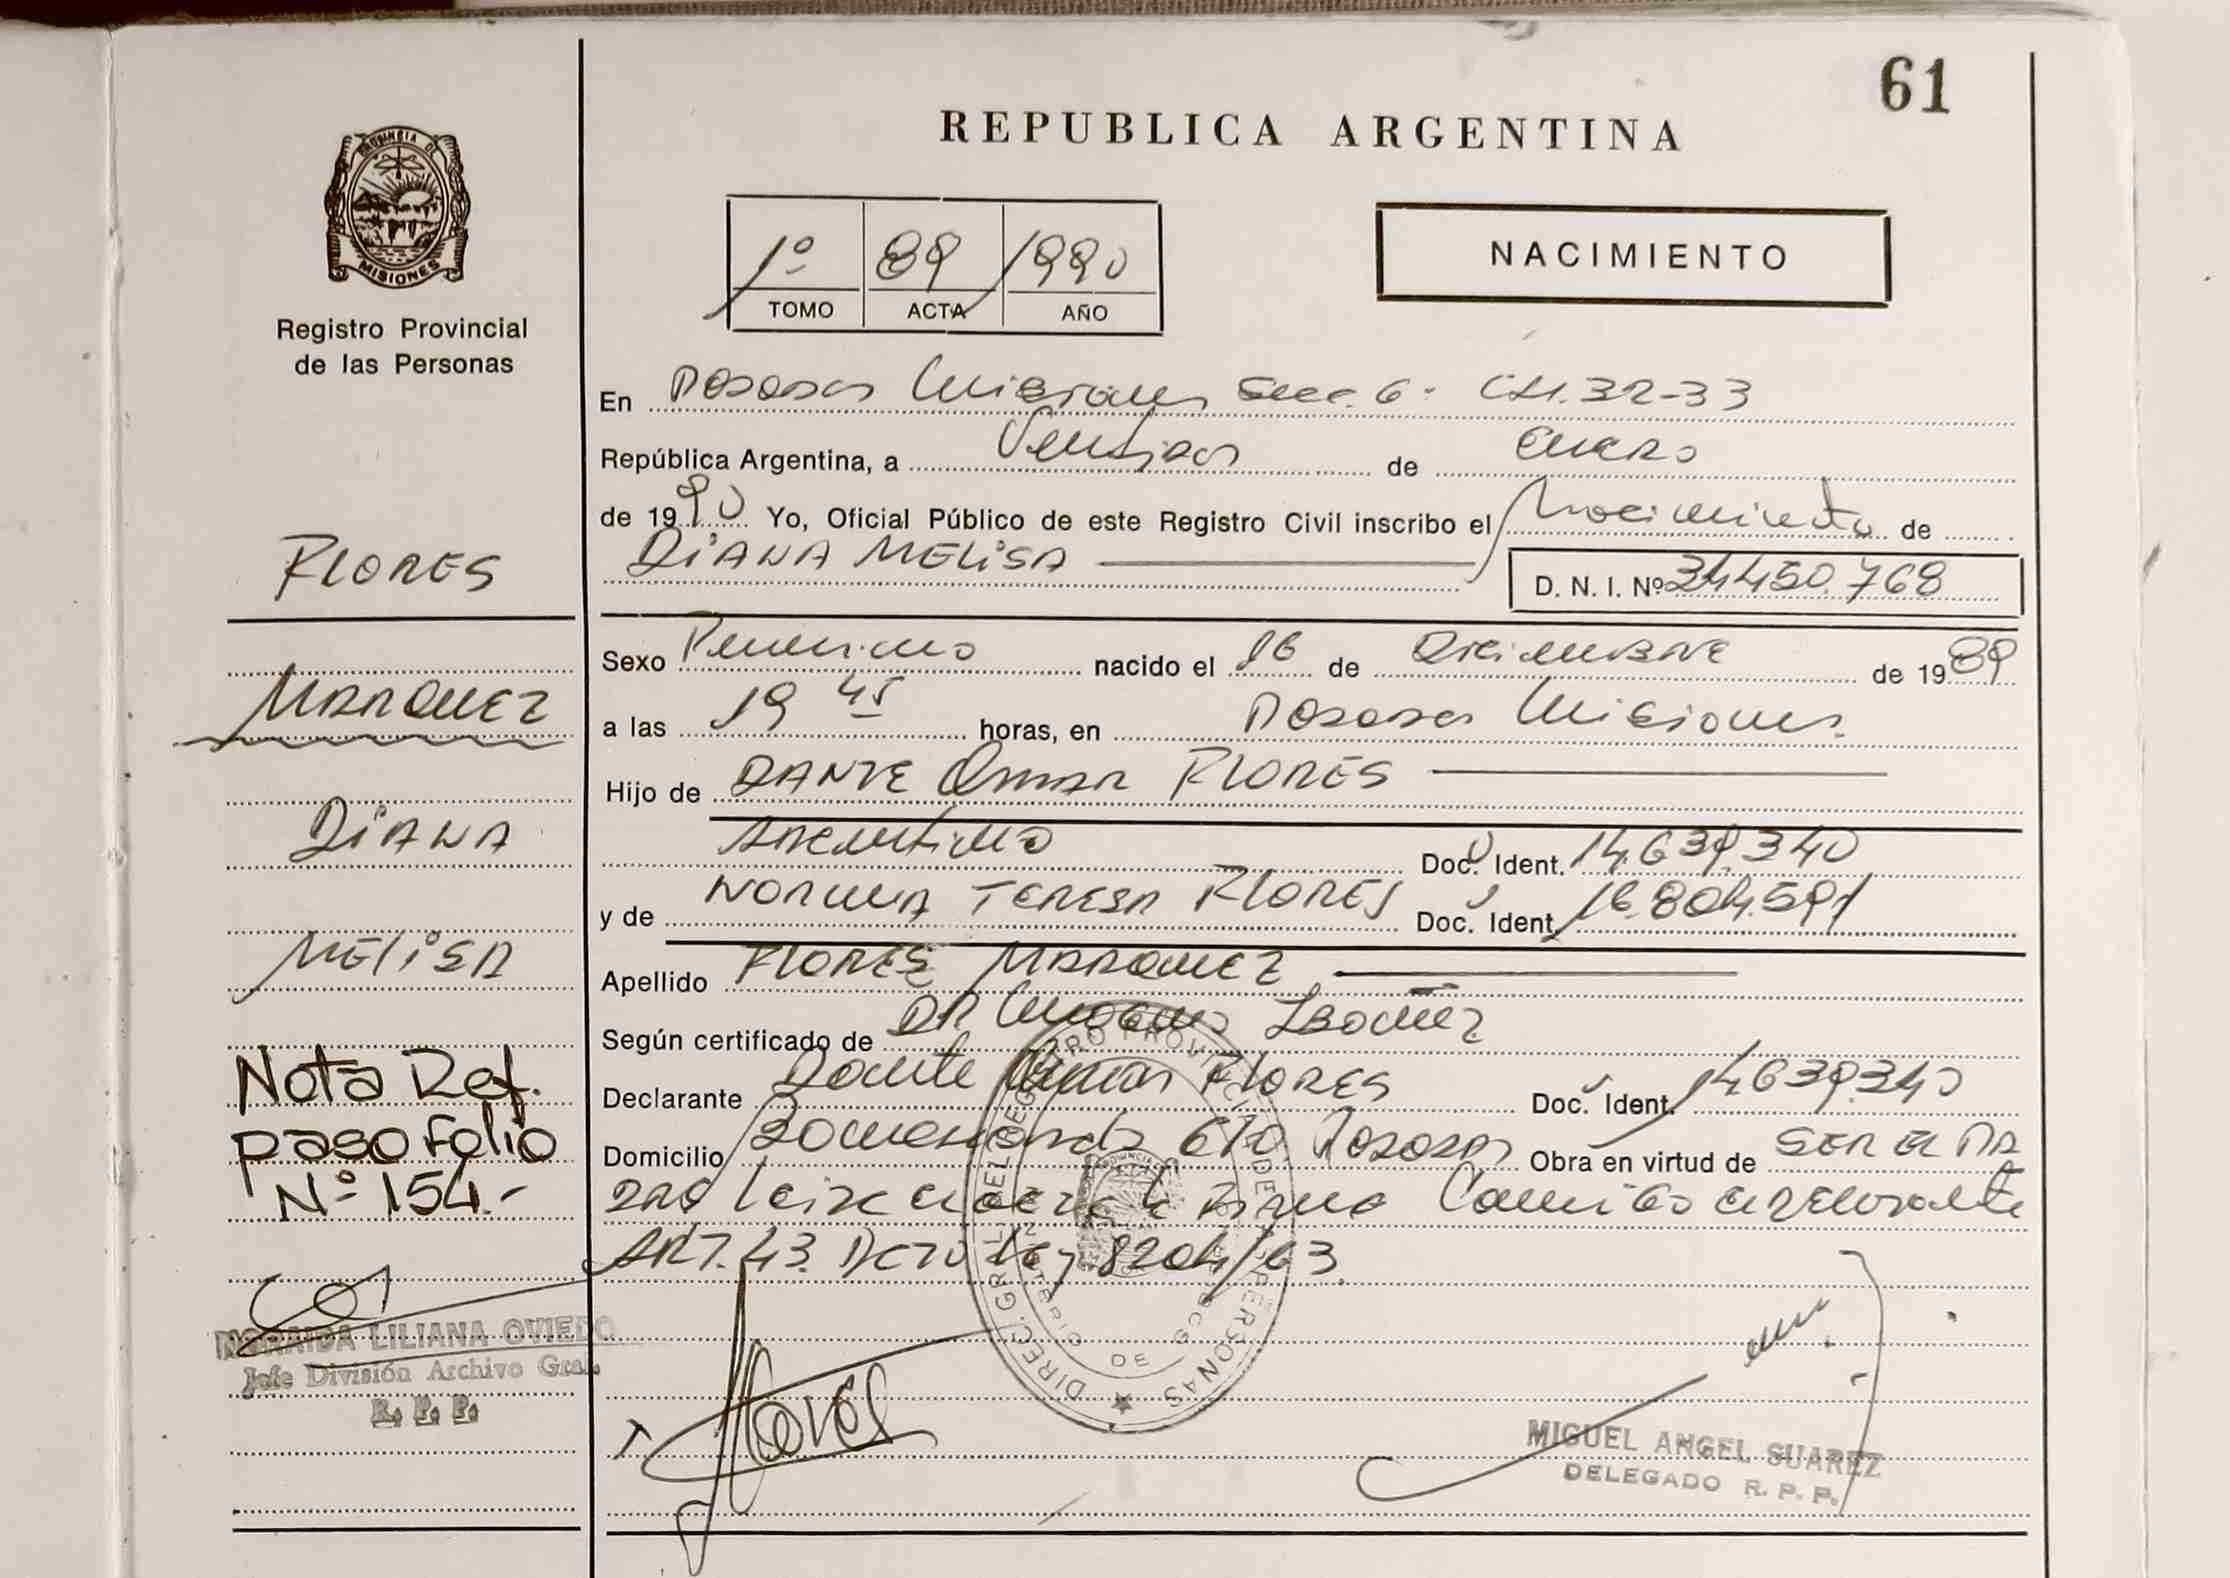 61
REPUBLICA ARGENTINA
PROVINCIA DE
MISIONES
Registro Provincial
de las Personas
1º 89 1990
TOMO ACTA AÑO
NACIMIENTO
En Posadas Misiones Secc. 6- CH.32-33
República Argentina, a Veintidos de Enero
de 1990 Yo, Oficial Público de este Registro Civil inscribo el Nacimiento de
DIANA MELISA
D. N. I. Nº 34450.768
Sexo Femenino nacido el 16 de Diciembre de 1989
a las 19 45 horas, en Posadas Misiones.
Hijo de DANTE Omar FLORES
Argentino Doc. Ident. 14.639.340
y de NORMA TERESA FLORES Doc. Ident. 16.804.591
Apellido FLORES MARQUEZ
Según certificado de DR Ibañez
Declarante Dante Omar FLORES Doc. Ident. 14639.340
Domicilio 670 Posadas Obra en virtud de SER EL PA
DRE Leida el acta la Firma Conmigo el declarante
ART. 43. DCTO Ley 8204/63.
FLORES
MARQUEZ
DIANA
MELISA
Nota Ref.
paso folio
Nº 154.-
NORAIDA LILIANA OVIEDO
Jefe División Archivo Gral.
R. P. P.
Flores
DIREC. GRAL DEL REGISTRO PROVINCIAL DE LAS PERSONAS
MIGUEL ANGEL SUAREZ
DELEGADO R. P. P.